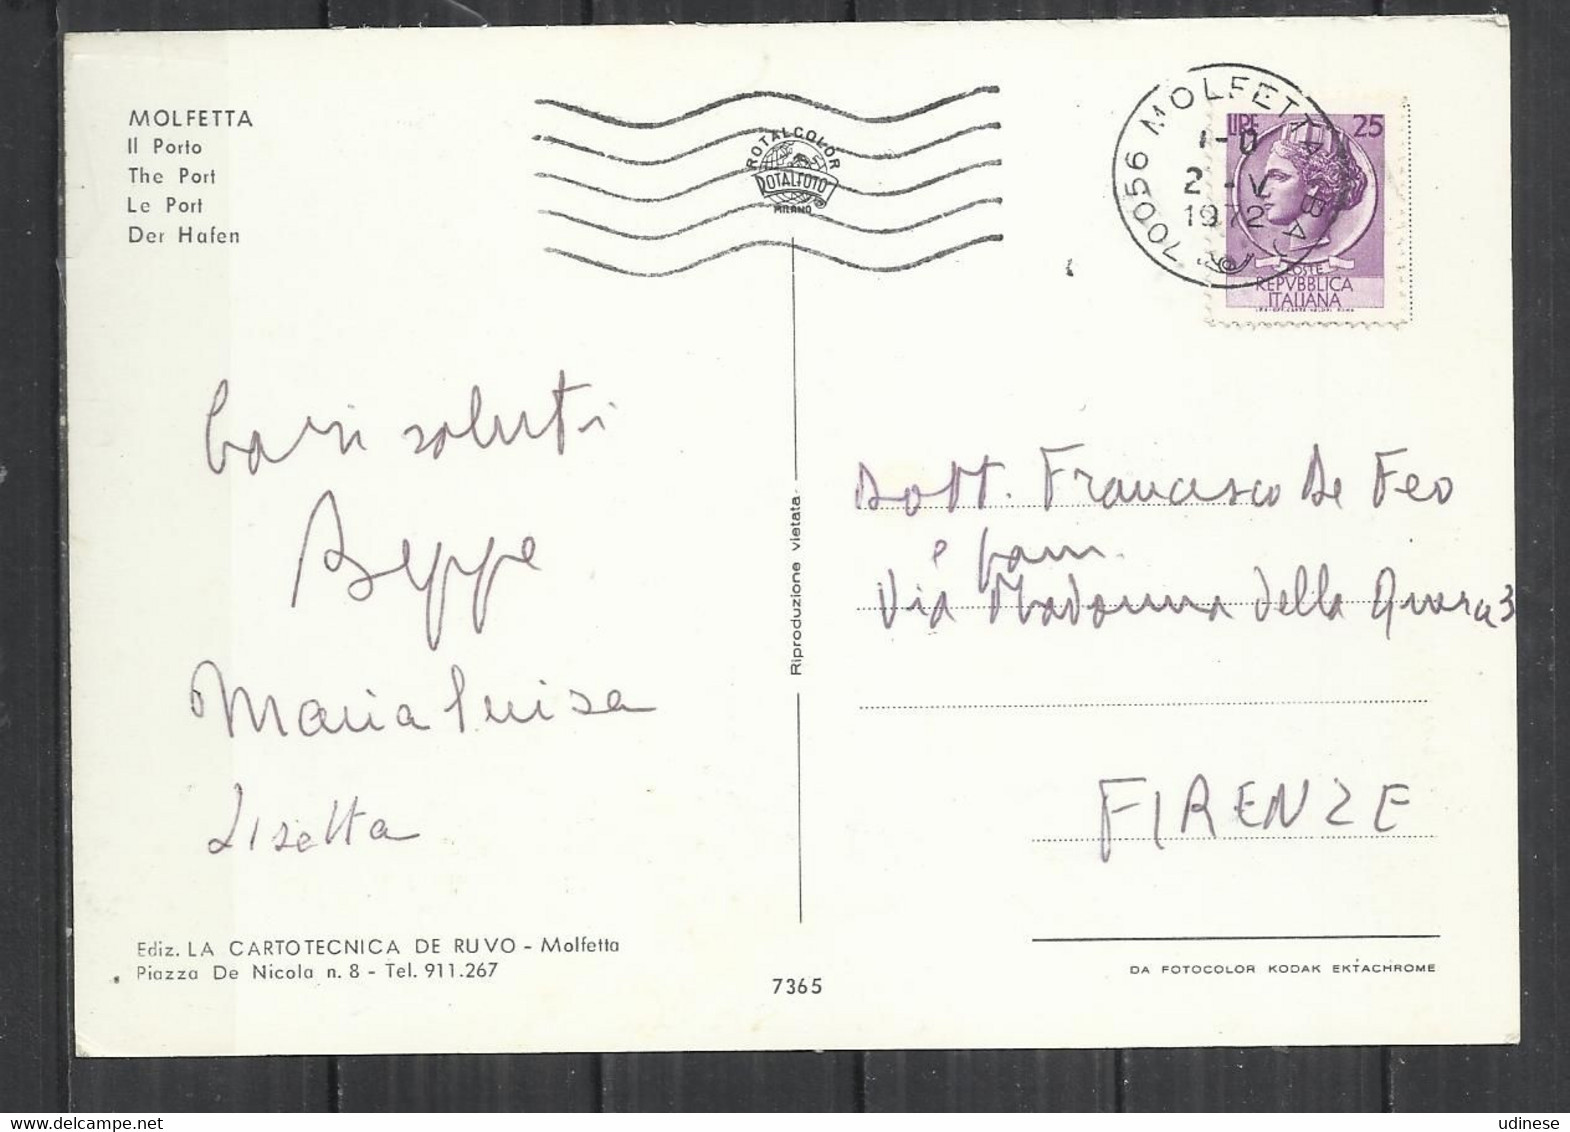 MOLFETTA
Il Porto
The Port
Le Port
Der Hafen
ROTALCOLOR
ROTALFOTO
MILANO
70056 MOLFETTA (BA)
1-0
2-V
1972
LIRE 25
POSTE
REPVBBLICA
ITALIANA
Cari saluti
Beppe
Maria Luisa
Lisetta
Riproduzione vietata
Dott. Francesco De Feo
e fam.
Via Madonna della Querce 3
FIRENZE
Ediz. LA CARTOTECNICA DE RUVO - Molfetta
Piazza De Nicola n. 8 - Tel. 911.267
7365
DA FOTOCOLOR KODAK EKTACHROME
udinese